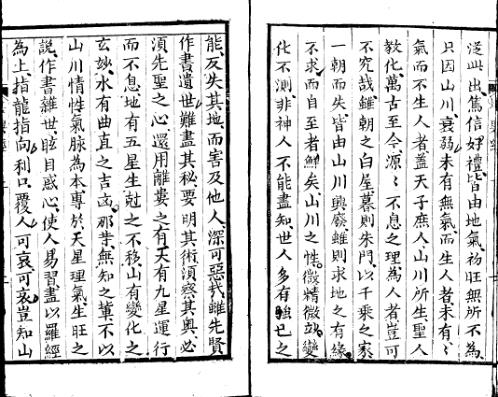 從此出篤信好禮皆由地氣初旺無所不為
只因山川衰弱未有無氣而生人者未有
氣而不生人者蓋天子庶人山川所生聖人
教化萬古至今源〻不息之理為人者豈可
不究哉雖朝之白屋暮則朱門以千乘之家
一朝而失皆由山川興廢雖則求地之有緣
不求而自至者鮮矣山川之性微精微
化不測非神人不能盡知世人多有強已之
能反失其地而害及他人深可惡哉雖先賢
作書遺世難盡其秘要明其術須察其奧必
須先聖之心還用離婁之有天有九星運行
而不息地有五星生尅之不移山有變化之
玄妙水有曲直之吉凶那等無知之輩不以
山川情性氣脉為本專於天星理氣生旺之
說作書雜世眩目惑心使人易習盡以羅經
為上指龍指向利口覆人可哀可哀豈知山